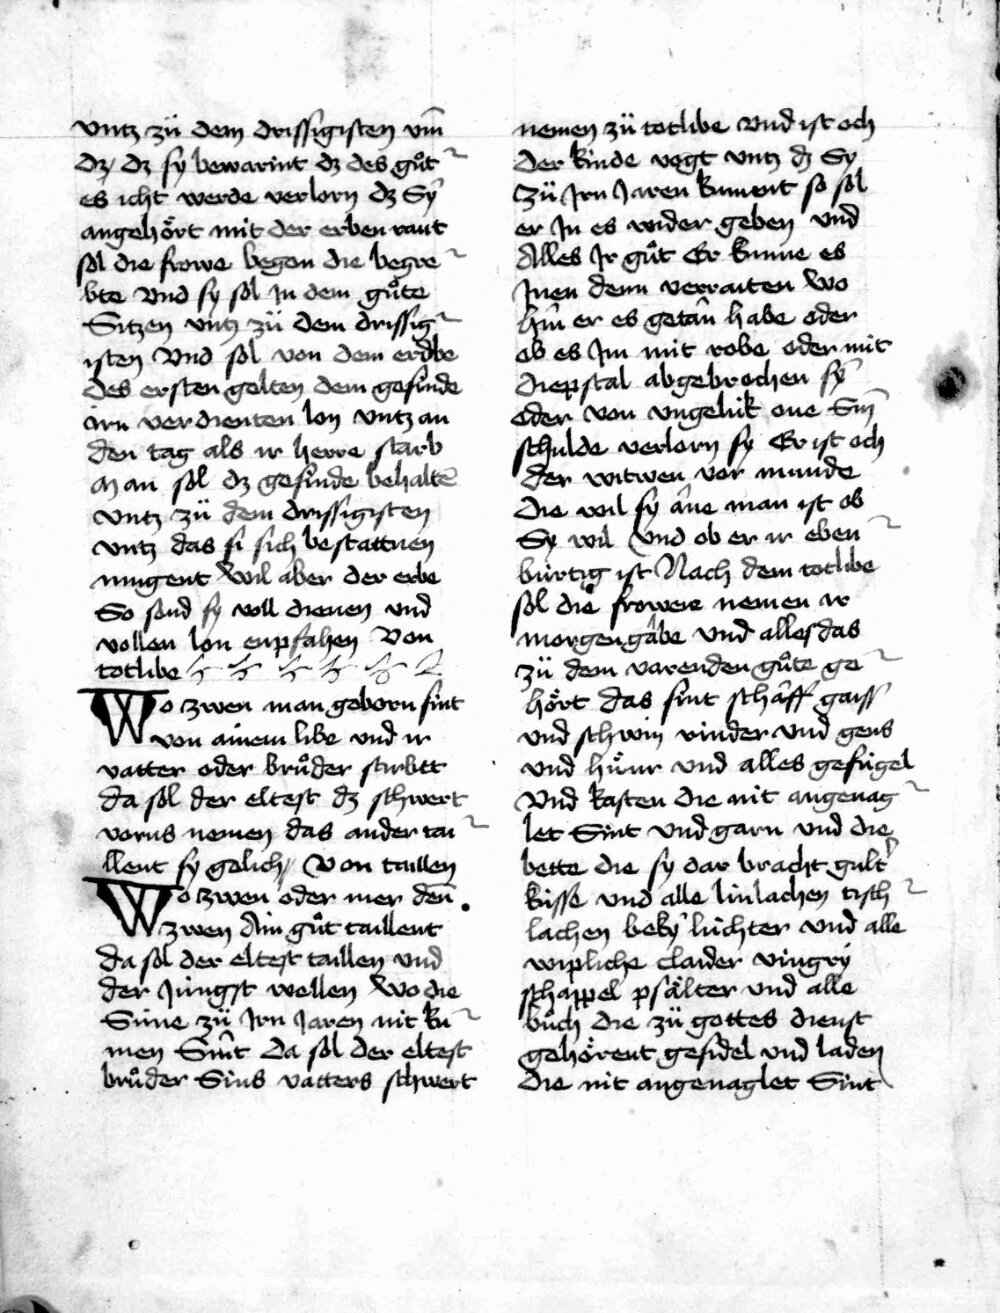 vntz zü dem drissigisten vm̄
dz dz sy bewarint dz des gůt
es icht werde verlorn dz Sy
angehört mit der erben raut
sol die frowe began die begre
bte Vnd sy sol jn dem gůte
Sitzen vntz zü dem drissig
isten Vnd sol von dem erdbe
des ersten gelten dem gesinde
irn verdienten lon vntz an
den tag als ir herre starb
Man sol dz gesinde behaltē
vntz zü dem drissigisten
vntz das si sich bestattnen
mugent Wil aber der erbe
So sond sy voll dienen vnd
vollen lon enpfahen Von
totlibe
Wo zwen man geborn sint
von ainem libe vnd ir
vatter oder brůder stirbtt
da sol der eltest dz schwert
vorus nemen das ander tai
llent sy gelich Von taillen
Wo zwen oder mer den̄
zwen Ain gůt taillent
da sol der eltest taillen vnd
der Jüngst wellen Wo die
Süne zü Jrn Jaren nit ku
men Sint da sol der eltest
brůder Sins vatters schwert
nemen zü totlibe Vnd ist och
der kinde vogt vntz dz Sy
zü Jrn Jaren kument so sol
er Jn es wider geben vnd
Alles Jr gůt Er kunne es
Jnen denn verraiten Wo
hin er es getân habe oder
ob es Jm mit robe oder mit
diepstal abgebrochen sy
oder von vngelük one Sin
schulde verlorn sy Er ist och
der witwen vor munde
die wil sy âne man ist ob
Sy wil Vnd ob er ir eben
bürtig ist Nach dem totlibe
sol die frowe nemen ir
morgengâbe vnd alles das
zü dem varenden gůte ge
hört das sint schâff gaiss
vnd schwin rinder vnd gens
vnd hünr vnd alles gefügel
Vnd kasten die nit angenag
let Sint vnd garn vnd die
bette die sy dar bracht gult
küsse vnd alle linlachen tisch
lachen beky lüchter vnd alle
wipliche claider vingry
schappel psälter vnd alle
bůch die zü gottes dienst
gehörent gesidel vnd laden
die nit angenaglet Sint